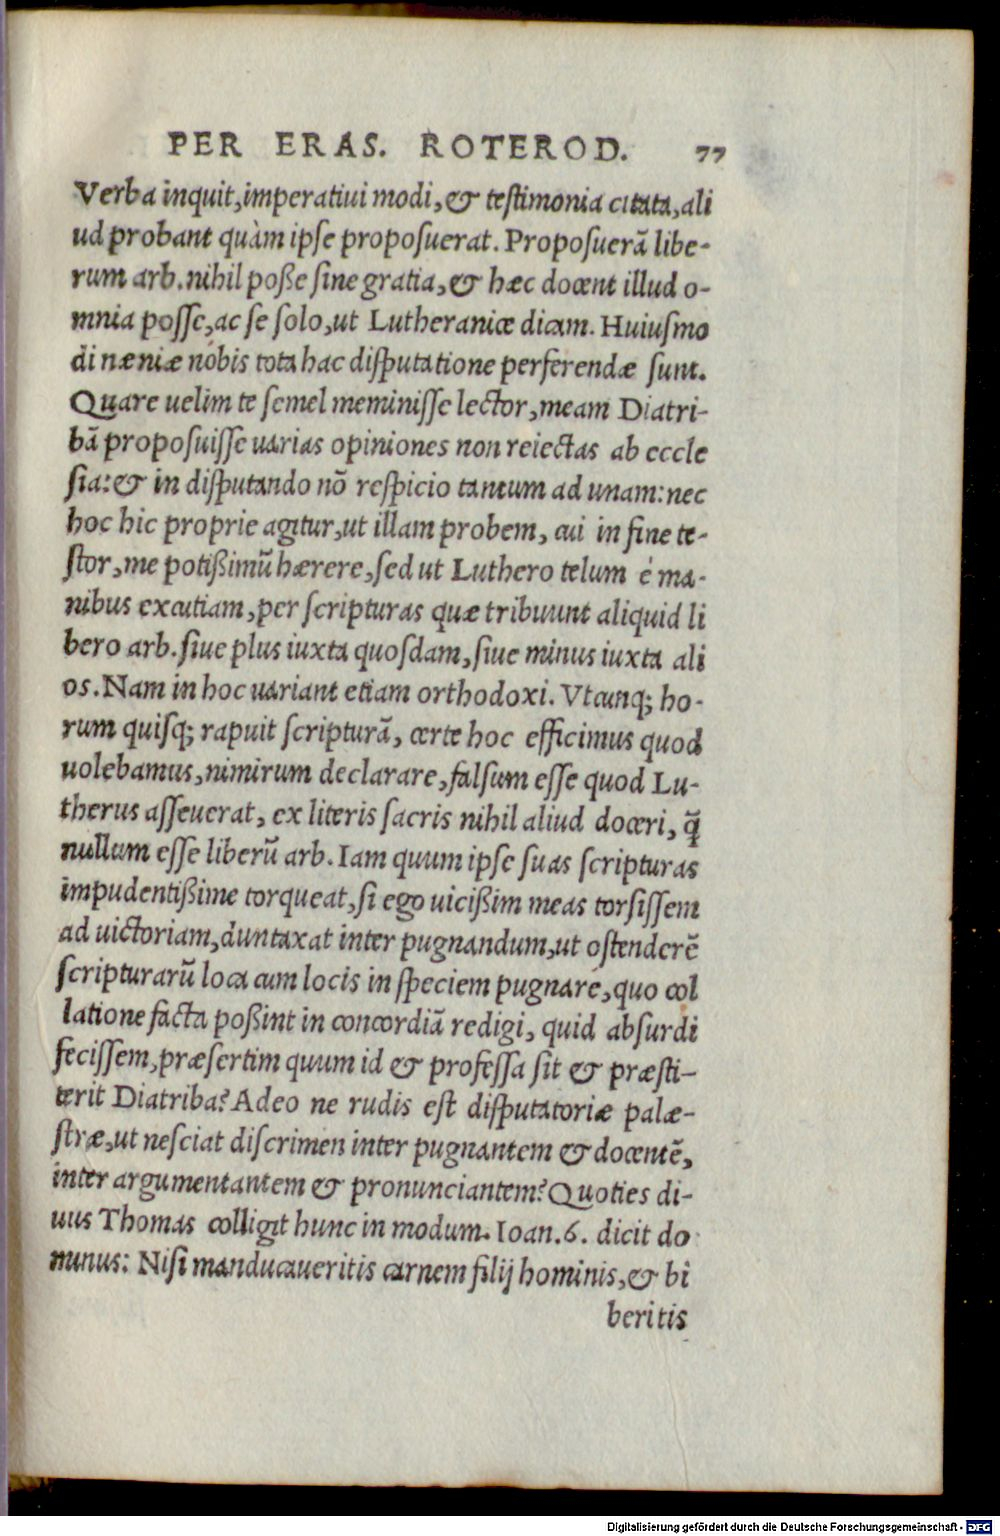 PER ERAS. ROTEROD. 77
Verba inquit, imperatiui modi, & testimonia citata, ali
ud probant quàm ipse proposuerat. Proposuerã libe-
rum arb. nihil posse sine gratia, & hæc docent illud o-
mnia posse, ac se solo, ut Lutheranicæ dicam. Huiusmo
di næniæ nobis tota hac disputatione perferendæ sunt.
Quare uelim te semel meminisse lector, meam Diatri-
bã proposuisse uarias opiniones non reiectas ab eccle
sia: & in disputando nõ respicio tantum ad unam: nec
hoc hic proprie agitur, ut illam probem, cui in fine te-
stor, me potißimũ hærere, sed ut Luthero telum è ma-
nibus excutiam, per scripturas quæ tribuunt aliquid li
bero arb. siue plus iuxta quosdam, siue minus iuxta ali
os. Nam in hoc uariant etiam orthodoxi. Vtcunq; ho-
rum quisq; rapuit scripturã, certe hoc efficimus quod
uolebamus, nimirum declarare, falsum esse quod Lu-
therus asseuerat, ex literis sacris nihil aliud doceri, q̃
nullum esse liberũ arb. Iam quum ipse suas scripturas
impudentißime torqueat, si ego uicißim meas torsissem
ad uictoriam, duntaxat inter pugnandum, ut ostenderẽ
scripturarũ loca cum locis in speciem pugnare, quo col
latione facta poßint in concordiã redigi, quid absurdi
fecissem, præsertim quum id & professa sit & præsti-
terit Diatriba? Adeo ne rudis est disputatoriæ palæ-
stræ, ut nesciat discrimen inter pugnantem & docentẽ,
inter argumentantem & pronunciantem? Quoties di-
uus Thomas colligit hunc in modum. Ioan. 6. dicit do
minus: Nisi manducaueritis carnem filij hominis, & bi
beritis
Digitalisierung gefördert durch die Deutsche Forschungsgemeinschaft - DFG